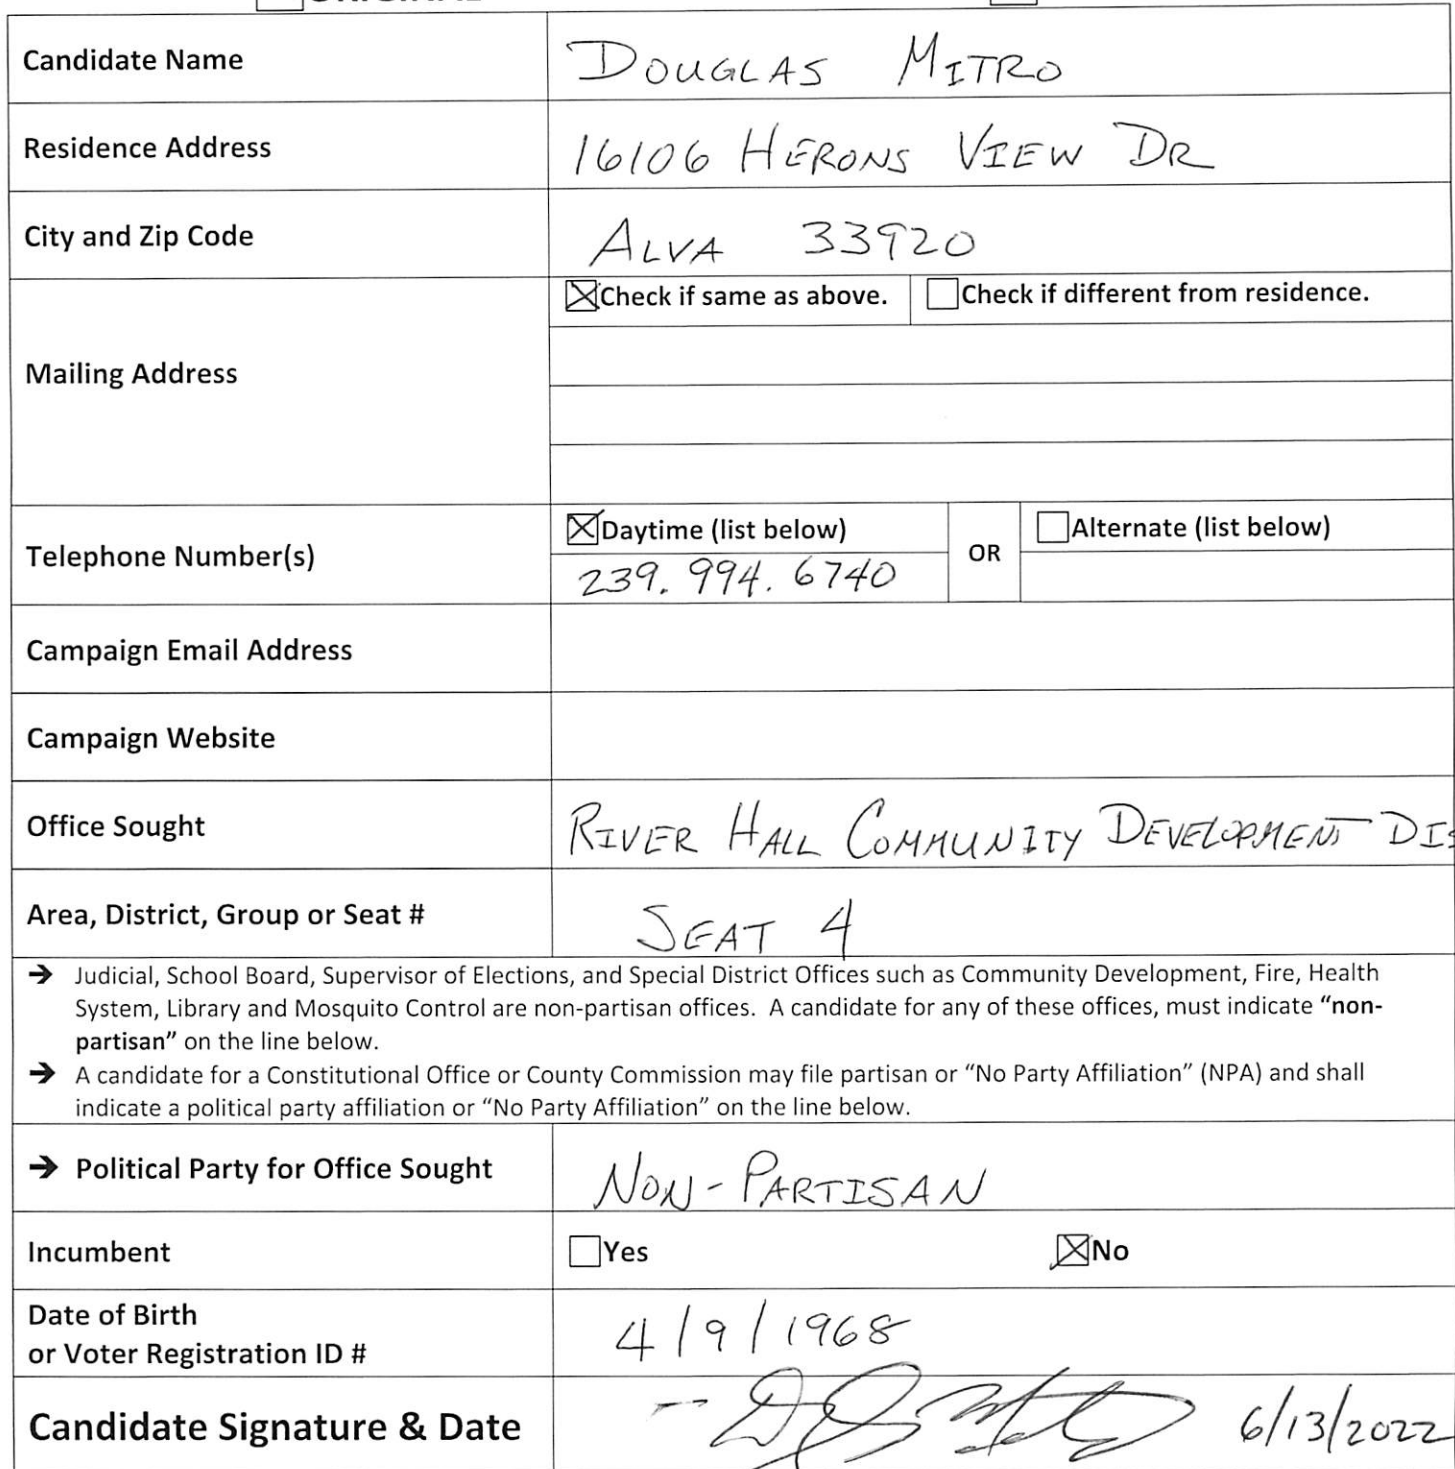 Candidate Name
DOUGLAS MITRO
Residence Address
16106 HERONS VIEW DR
City and Zip Code
ALVA 33920
Mailing Address
Check if same as above.
Check if different from residence.
Telephone Number(s)
Daytime (list below)
239.994.6740
OR
Alternate (list below)
Campaign Email Address
Campaign Website
Office Sought
RIVER HALL COMMUNITY DEVELOPMENT DIS
Area, District, Group or Seat #
SEAT 4
→ Judicial, School Board, Supervisor of Elections, and Special District Offices such as Community Development, Fire, Health
System, Library and Mosquito Control are non-partisan offices. A candidate for any of these offices, must indicate "non-
partisan" on the line below.
→ A candidate for a Constitutional Office or County Commission may file partisan or "No Party Affiliation" (NPA) and shall
indicate a political party affiliation or "No Party Affiliation" on the line below.
→ Political Party for Office Sought
NON-PARTISAN
Incumbent
Yes
No
Date of Birth
or Voter Registration ID #
4/9/1968
Candidate Signature & Date
6/13/2022